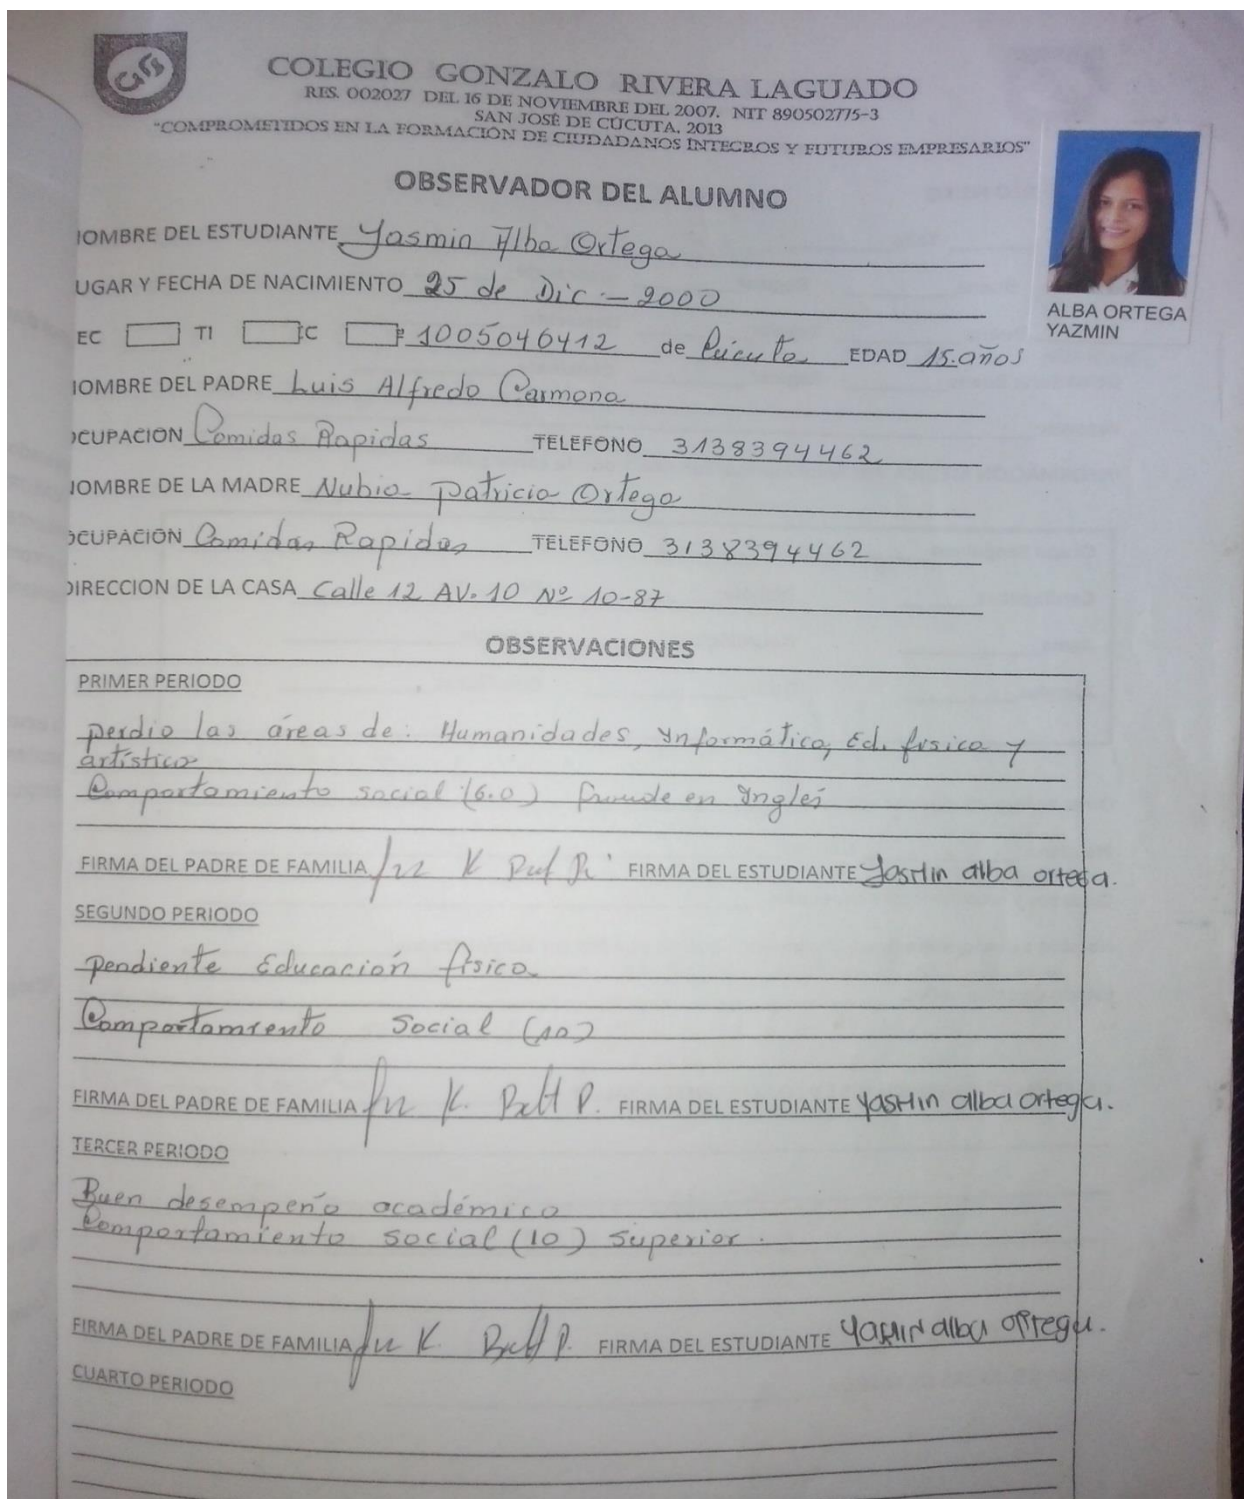 COLEGIO GONZALO RIVERA LAGUADO
RES. 002027 DEL 16 DE NOVIEMBRE DEL 2007. NIT 890502775-3
SAN JOSÉ DE CÚCUTA. 2013
"COMPROMETIDOS EN LA FORMACIÓN DE CIUDADANOS INTEGROS Y FUTUROS EMPRESARIOS"
OBSERVADOR DEL ALUMNO
ALBA ORTEGA
YAZMIN
IOMBRE DEL ESTUDIANTE Yasmin Alba Ortega
UGAR Y FECHA DE NACIMIENTO 25 de Dic - 2000
EC TI C 1005046412 de Cúcuta EDAD 15 años
IOMBRE DEL PADRE Luis Alfredo Carmona
OCUPACION Comidas Rapidas TELEFONO 3138394462
IOMBRE DE LA MADRE Nubia Patricia Ortega
OCUPACION Comidas Rapidas TELEFONO 3138394462
DIRECCION DE LA CASA Calle 12 AV. 10 Nº 10-87
OBSERVACIONES
PRIMER PERIODO
perdio las áreas de: Humanidades, Informática, Ed. física y
artística
Comportamiento social (6.0) fraude en Inglés
FIRMA DEL PADRE DE FAMILIA FIRMA DEL ESTUDIANTE Yasmin alba ortega.
SEGUNDO PERIODO
pendiente Educación física
Comportamiento Social (10)
FIRMA DEL PADRE DE FAMILIA FIRMA DEL ESTUDIANTE Yasmin alba ortega.
TERCER PERIODO
Buen desempeño académico
Comportamiento social (10) Superior.
FIRMA DEL PADRE DE FAMILIA FIRMA DEL ESTUDIANTE Yasmin alba ortega.
CUARTO PERIODO